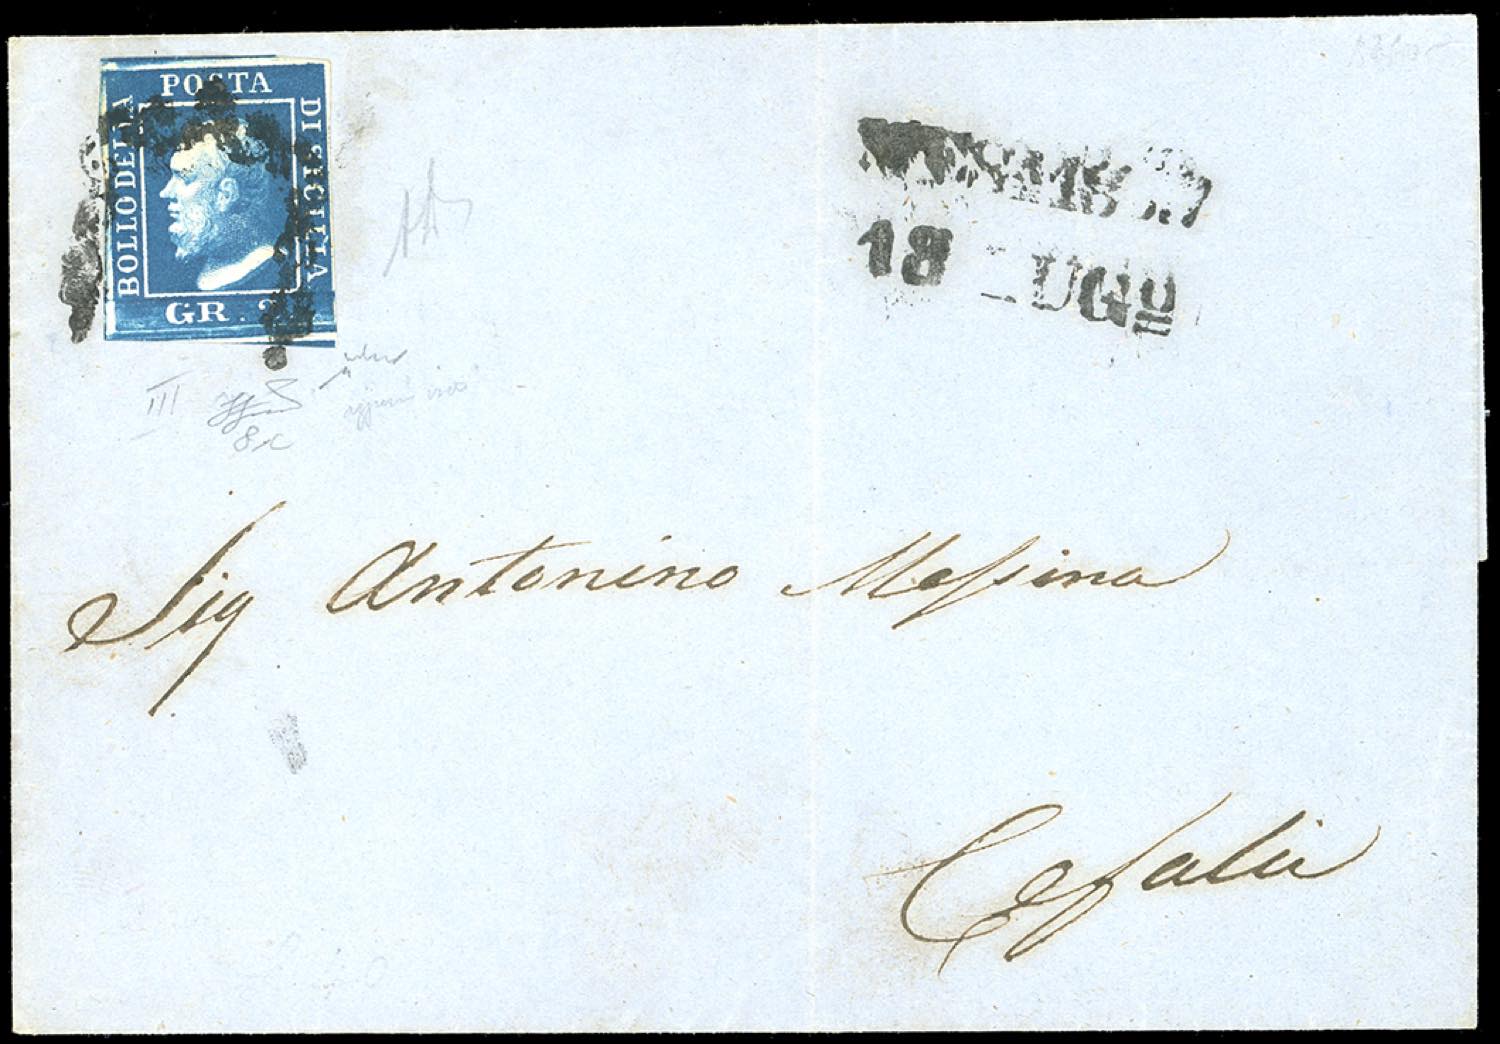 POSTA
BOLLO DELLA
DI SICILIA
GR. 2
18 LUGO
III
Sig Antonino Messina
Cefalù